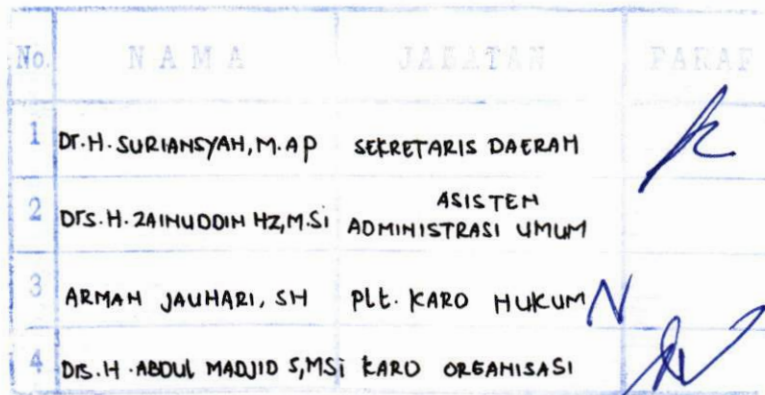 No. N A M A JABATAN PARAF
1 Dr. H. SURIANSYAH, M. AP SEKRETARIS DAERAH
2 Drs. H. ZAINUDDIN HZ, M.Si ASISTEN
ADMINISTRASI UMUM
3 ARMAN JAUHARI, SH Plt. KARO HUKUM
4 Drs. H. ABDUL MADJID S, MSi KARO ORGANISASI